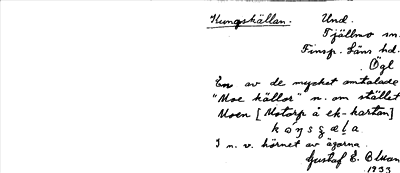 Kungskällan. Und.
Tjällmo sn.
Finsp. läns hd.
Ögl
En av de mycket omtalade
"Moe källor" n. om stället
Moen [Motorp å ek-kartan]
I n. v. hörnet av ägorna.
Gustaf E.
1933